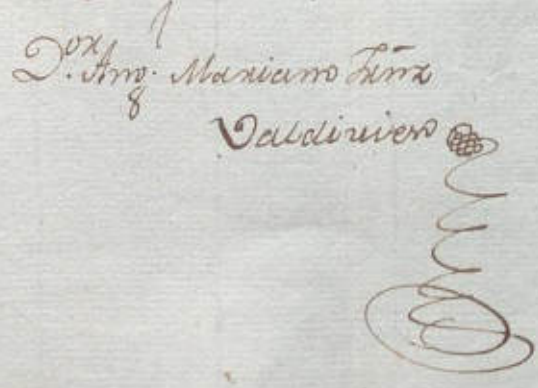 D.ᵒʳ Ang. Mariano Ximz
Valdivieso